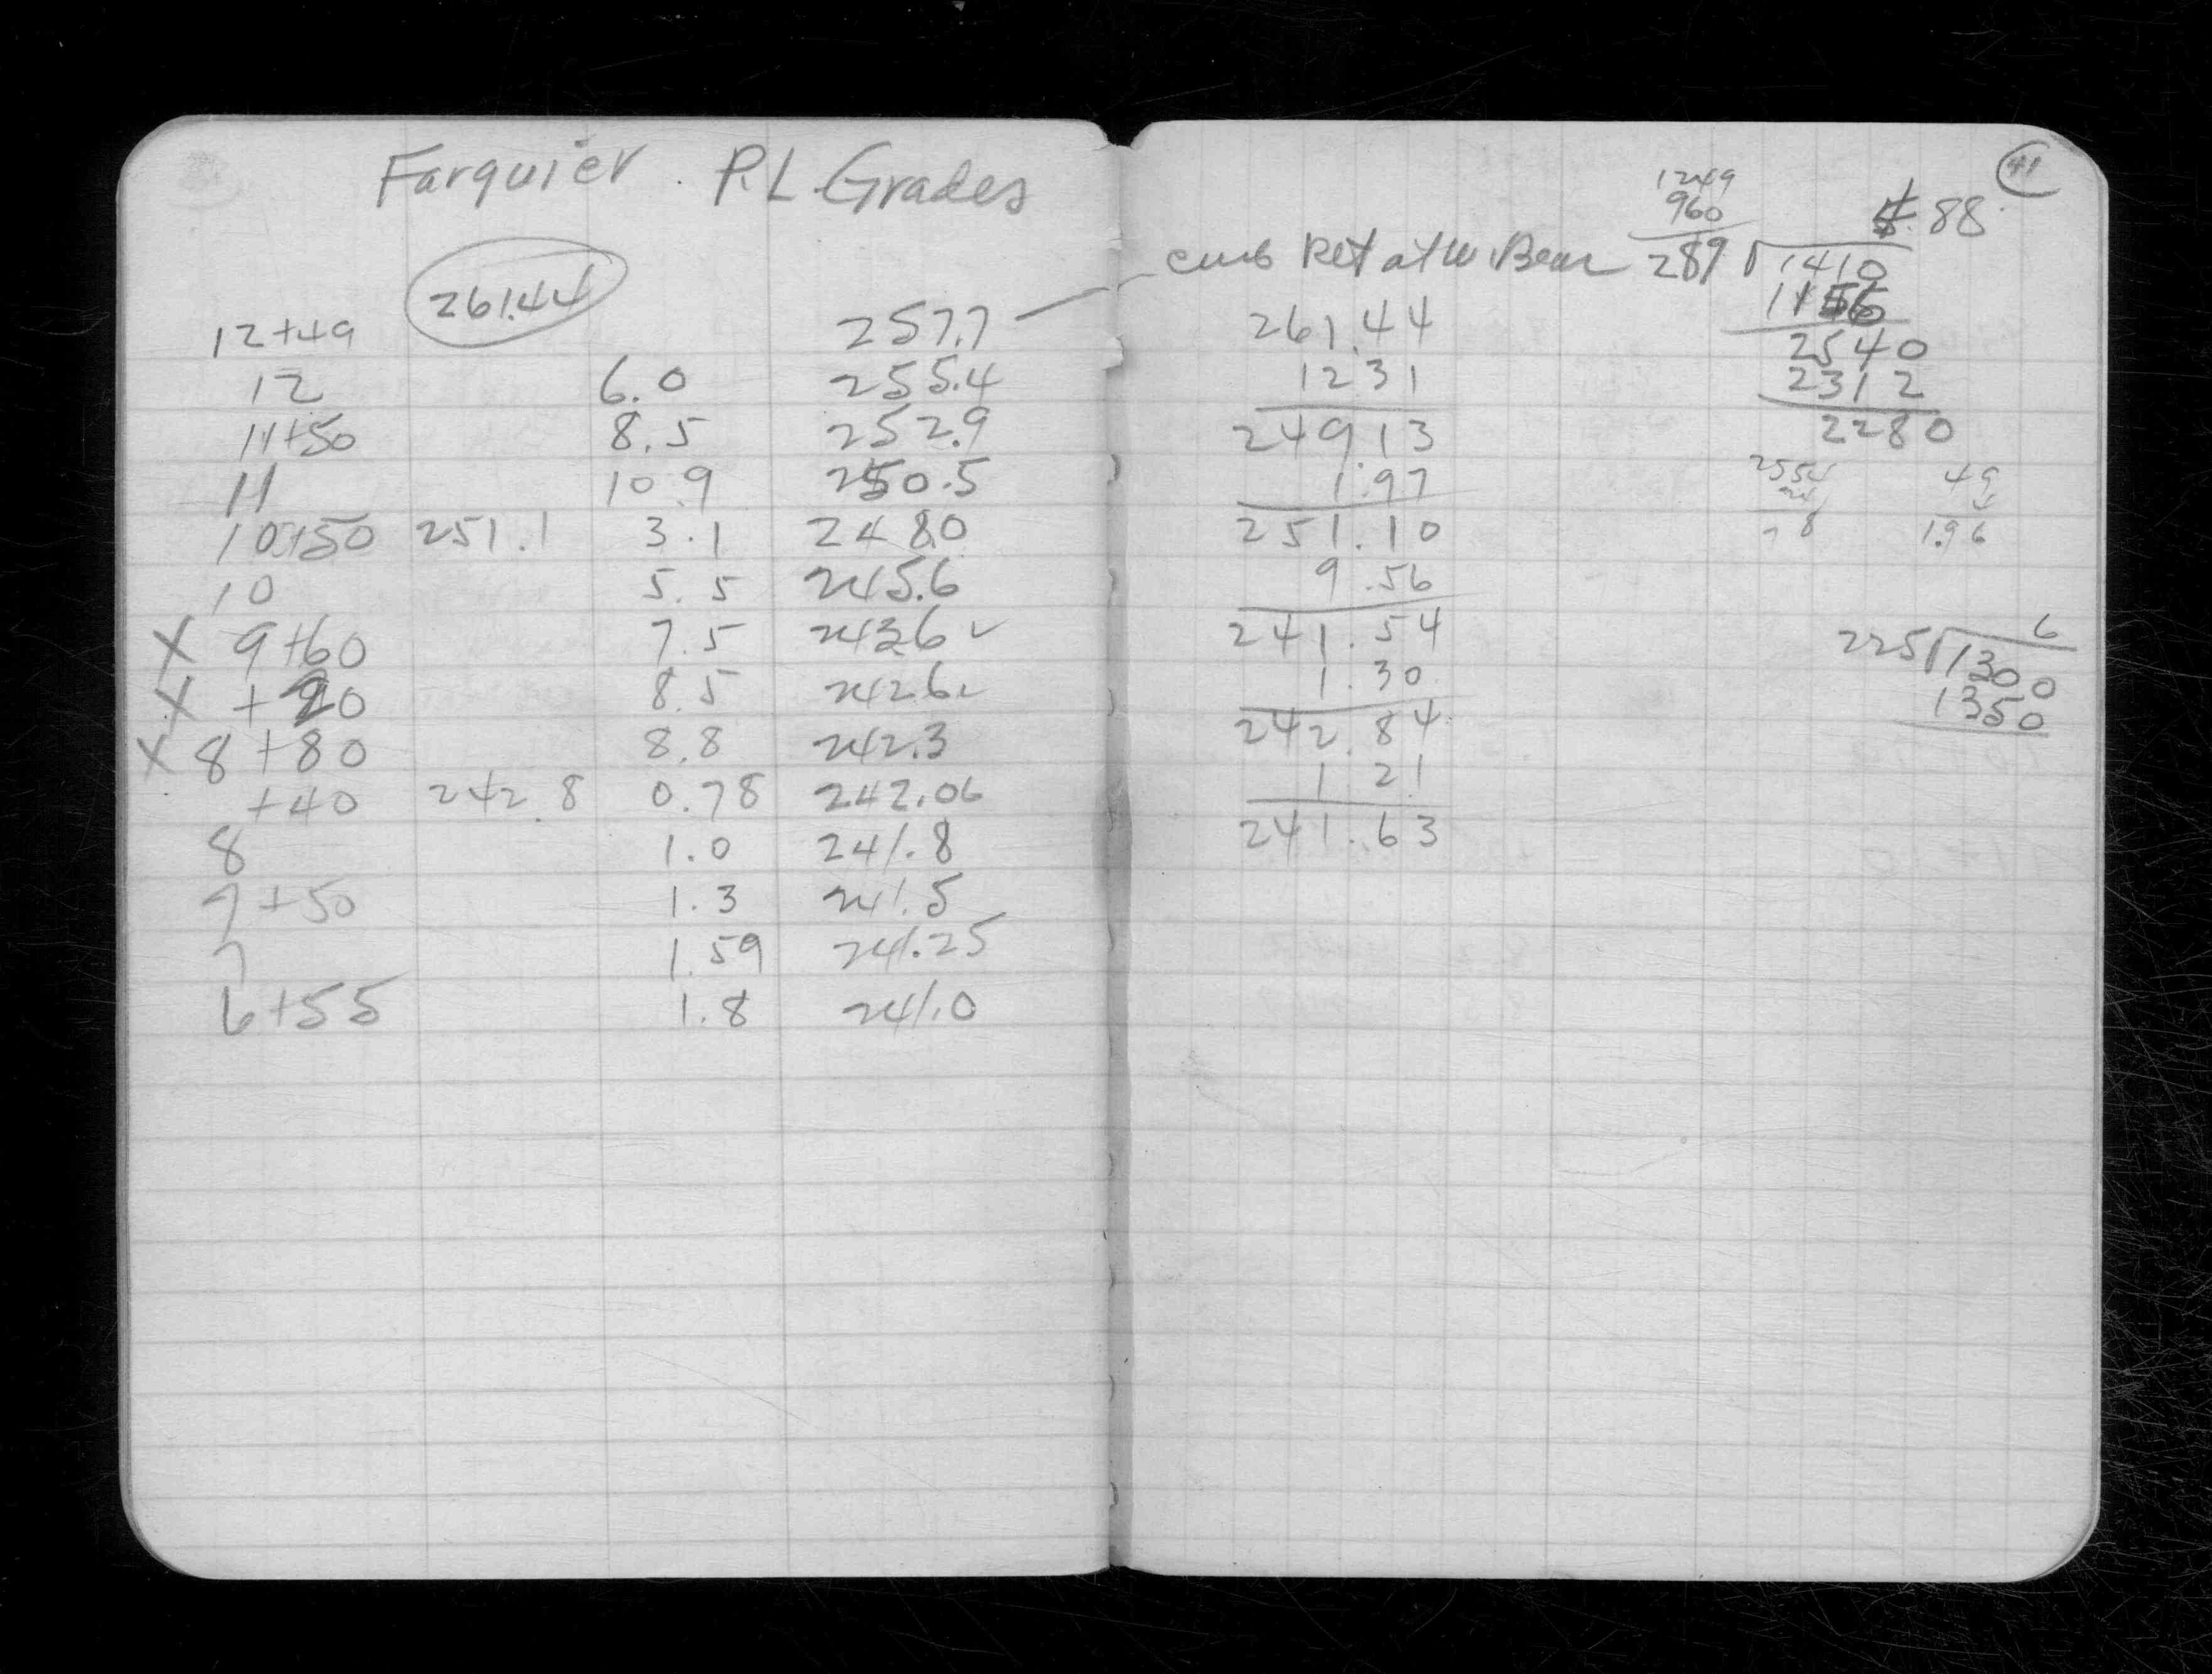 Farquier P.L. Grades
261.44
12+49 257.7
12 6.0 255.4
11+50 8.5 252.9
11 10.9 250.5
10+50 251.1 3.1 248.0
10 5.5 245.6
X 9+60 7.5 243.6 ✓
X +20 8.5 242.6 ✓
X 8+80 8.8 242.3
+40 242.8 0.78 242.06
8 1.0 241.8
7+50 1.3 241.5
7 1.59 241.25
6+55 1.8 241.0
41
curb Ret at W.
261.44
1231
249 13
1.97
251.10
9.56
241.54
1.30
242.84
1.21
241.63
1249
960
289 1410
.88
1156
2540
2312
2280
2554
78
49
4
1.96
6
225 1300
1350